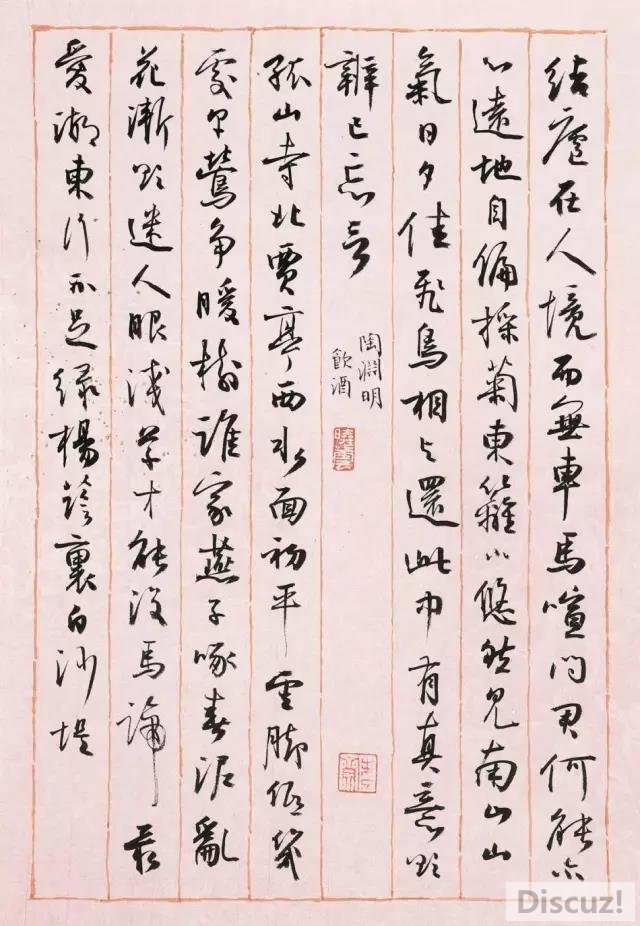 結廬在人境而無車馬喧问君何能尔
心遠地自偏採菊東籬下悠然见南山山
氣日夕佳飛鳥相与還此中有真意欲
辨已忘言
陶淵明
飲酒
孤山寺北賈亭西水面初平雲脚低幾
處早鶯争暖樹誰家燕子啄春泥亂
花漸欲迷人眼浅草才能没馬蹄最
愛湖東行不足绿楊陰裏白沙堤
Discuz!